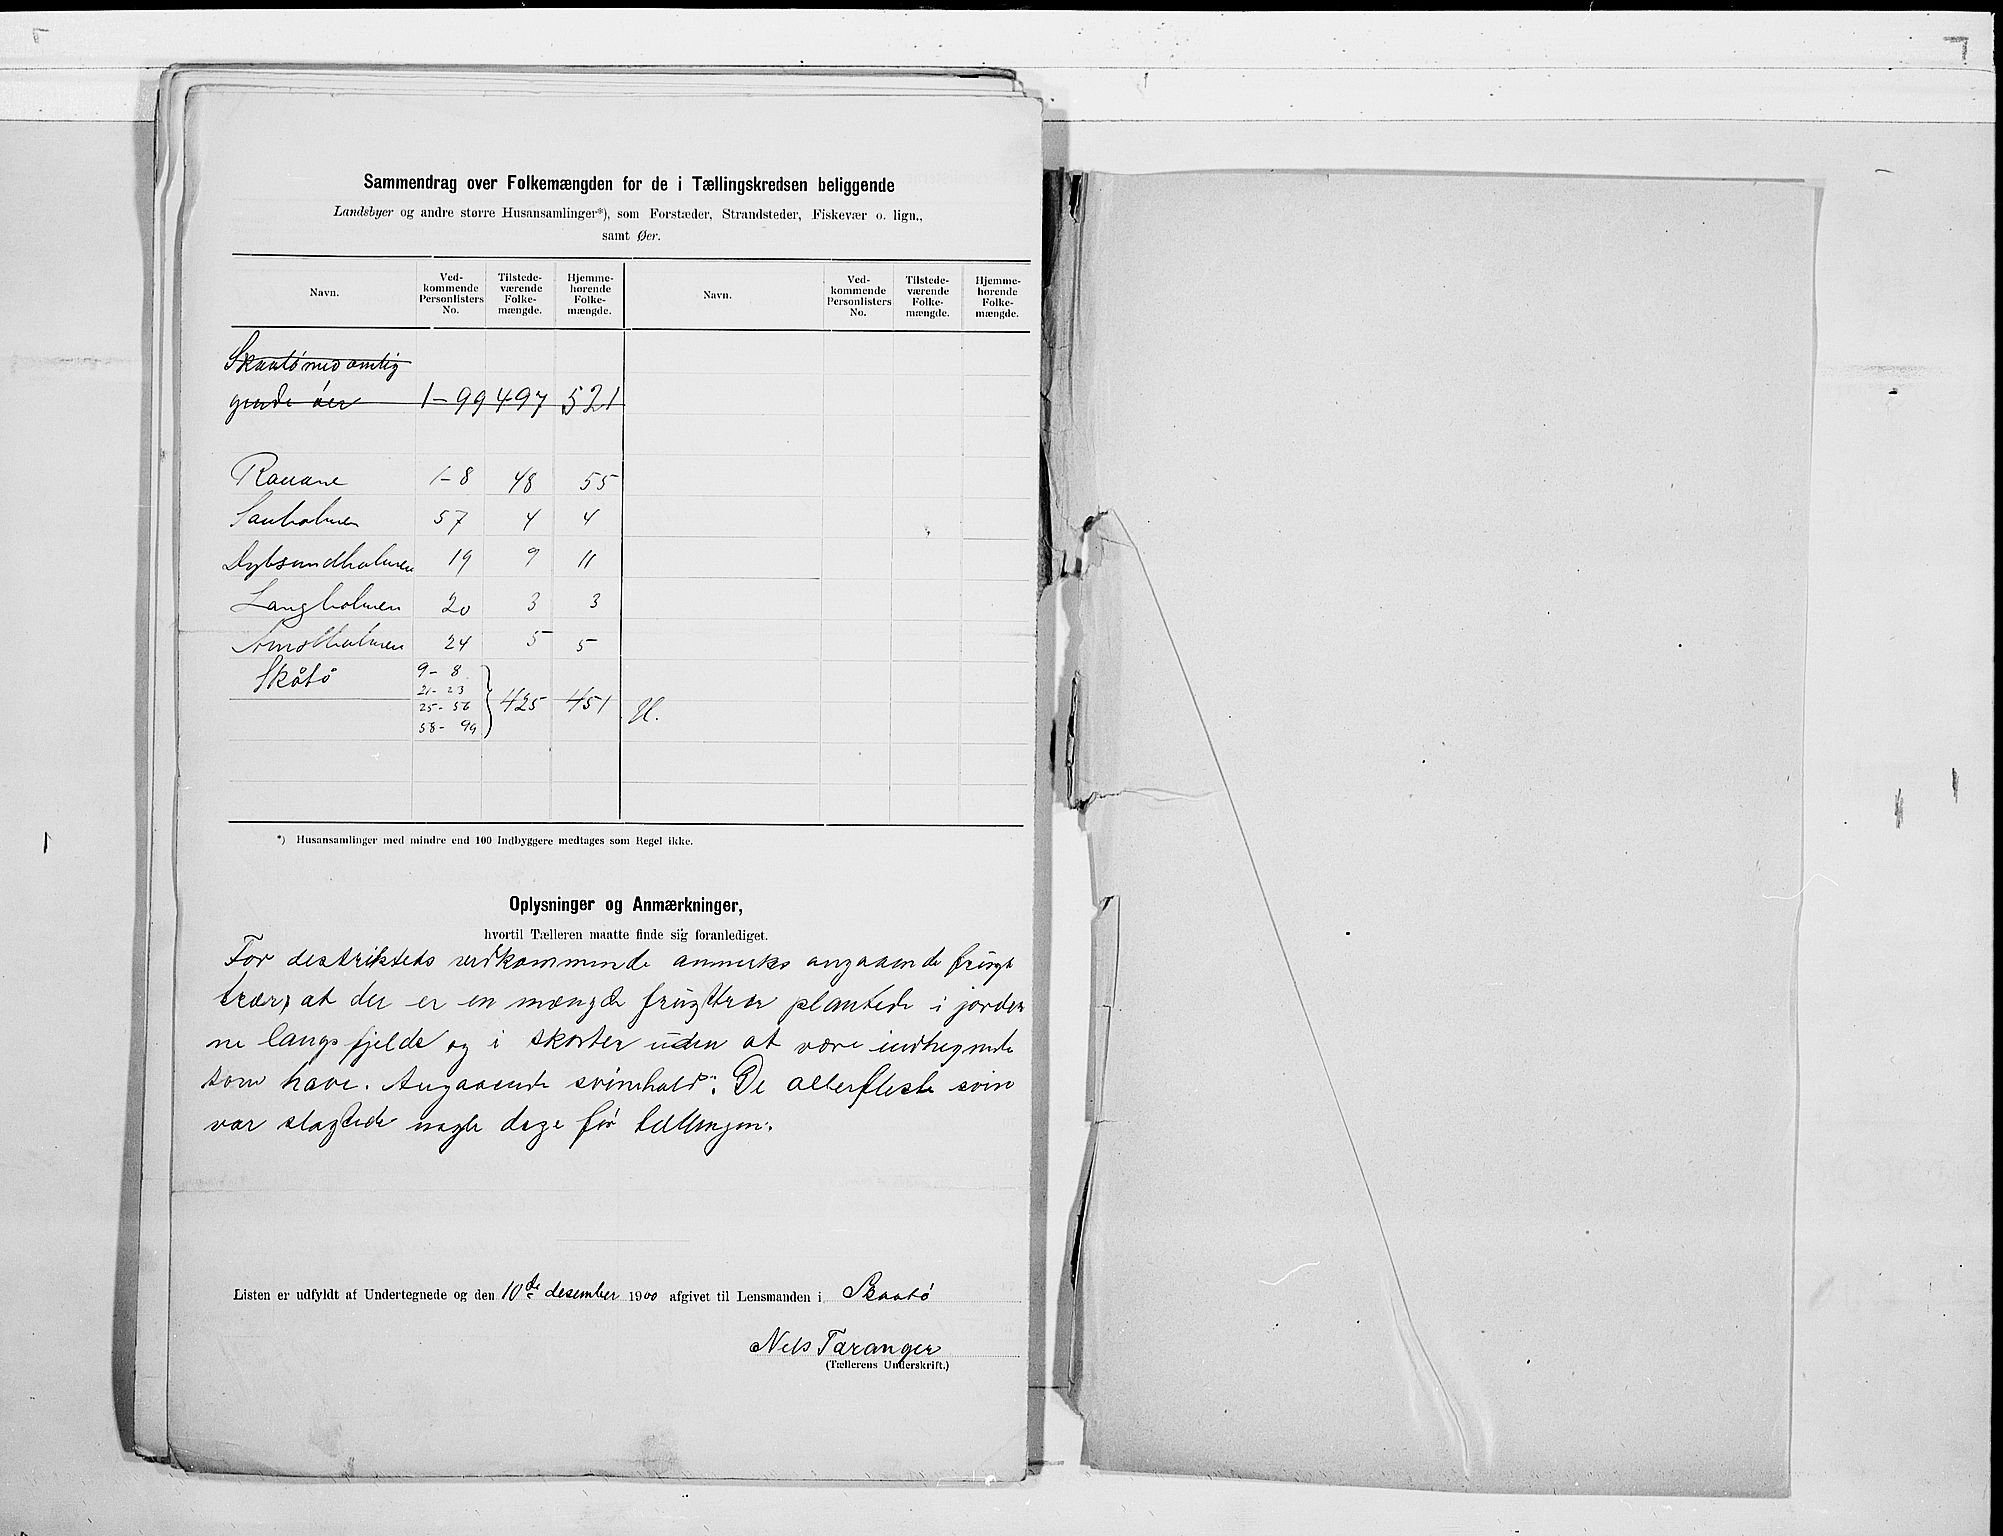 Sammendrag over Folkemængden for de i Tællingskredsen beliggende
Landsbyer og andre større Husansamlinger*), som Forstæder, Strandsteder, Fiskevær o. lign.,
samt Øer.
Navn. Ved-kommende Personlisters No. Tilstede-værende Folke-mængde. Hjemme-hørende Folke-mængde. Navn. Ved-kommende Personlisters No. Tilstede-værende Folke-mængde. Hjemme-hørende Folke-mængde.
Skaatø med omlig
gende öer 1-99 497 521
Rauane 1-8 48 55
Sauholmen 57 4 4
Dybsundholmen 19 9 11
Langholmen 20 3 3
24 5 5
Skåtö 9- 8
21- 23
25- 56 425 451
58- 99
*) Husansamlinger med mindre end 100 Indbyggere medtages som Regel ikke.
Oplysninger og Anmærkninger,
hvortil Tælleren maatte finde sig foranlediget.
For destriktets vedkommende anmerkes angaaende frugt
trær, at der er en mængde frugttrær plantede i jorder
ne langs fjelde og i skorter uden at være indhegnede
som have. Angaaende svinehold: De allerfleste svin
var slagtede nogle dage før tællingen.
Listen er udfyldt af Undertegnede og den 10de desember 1900 afgivet til Lensmanden i Skaatö
Nels Taranger
(Tællerens Underskrift.)